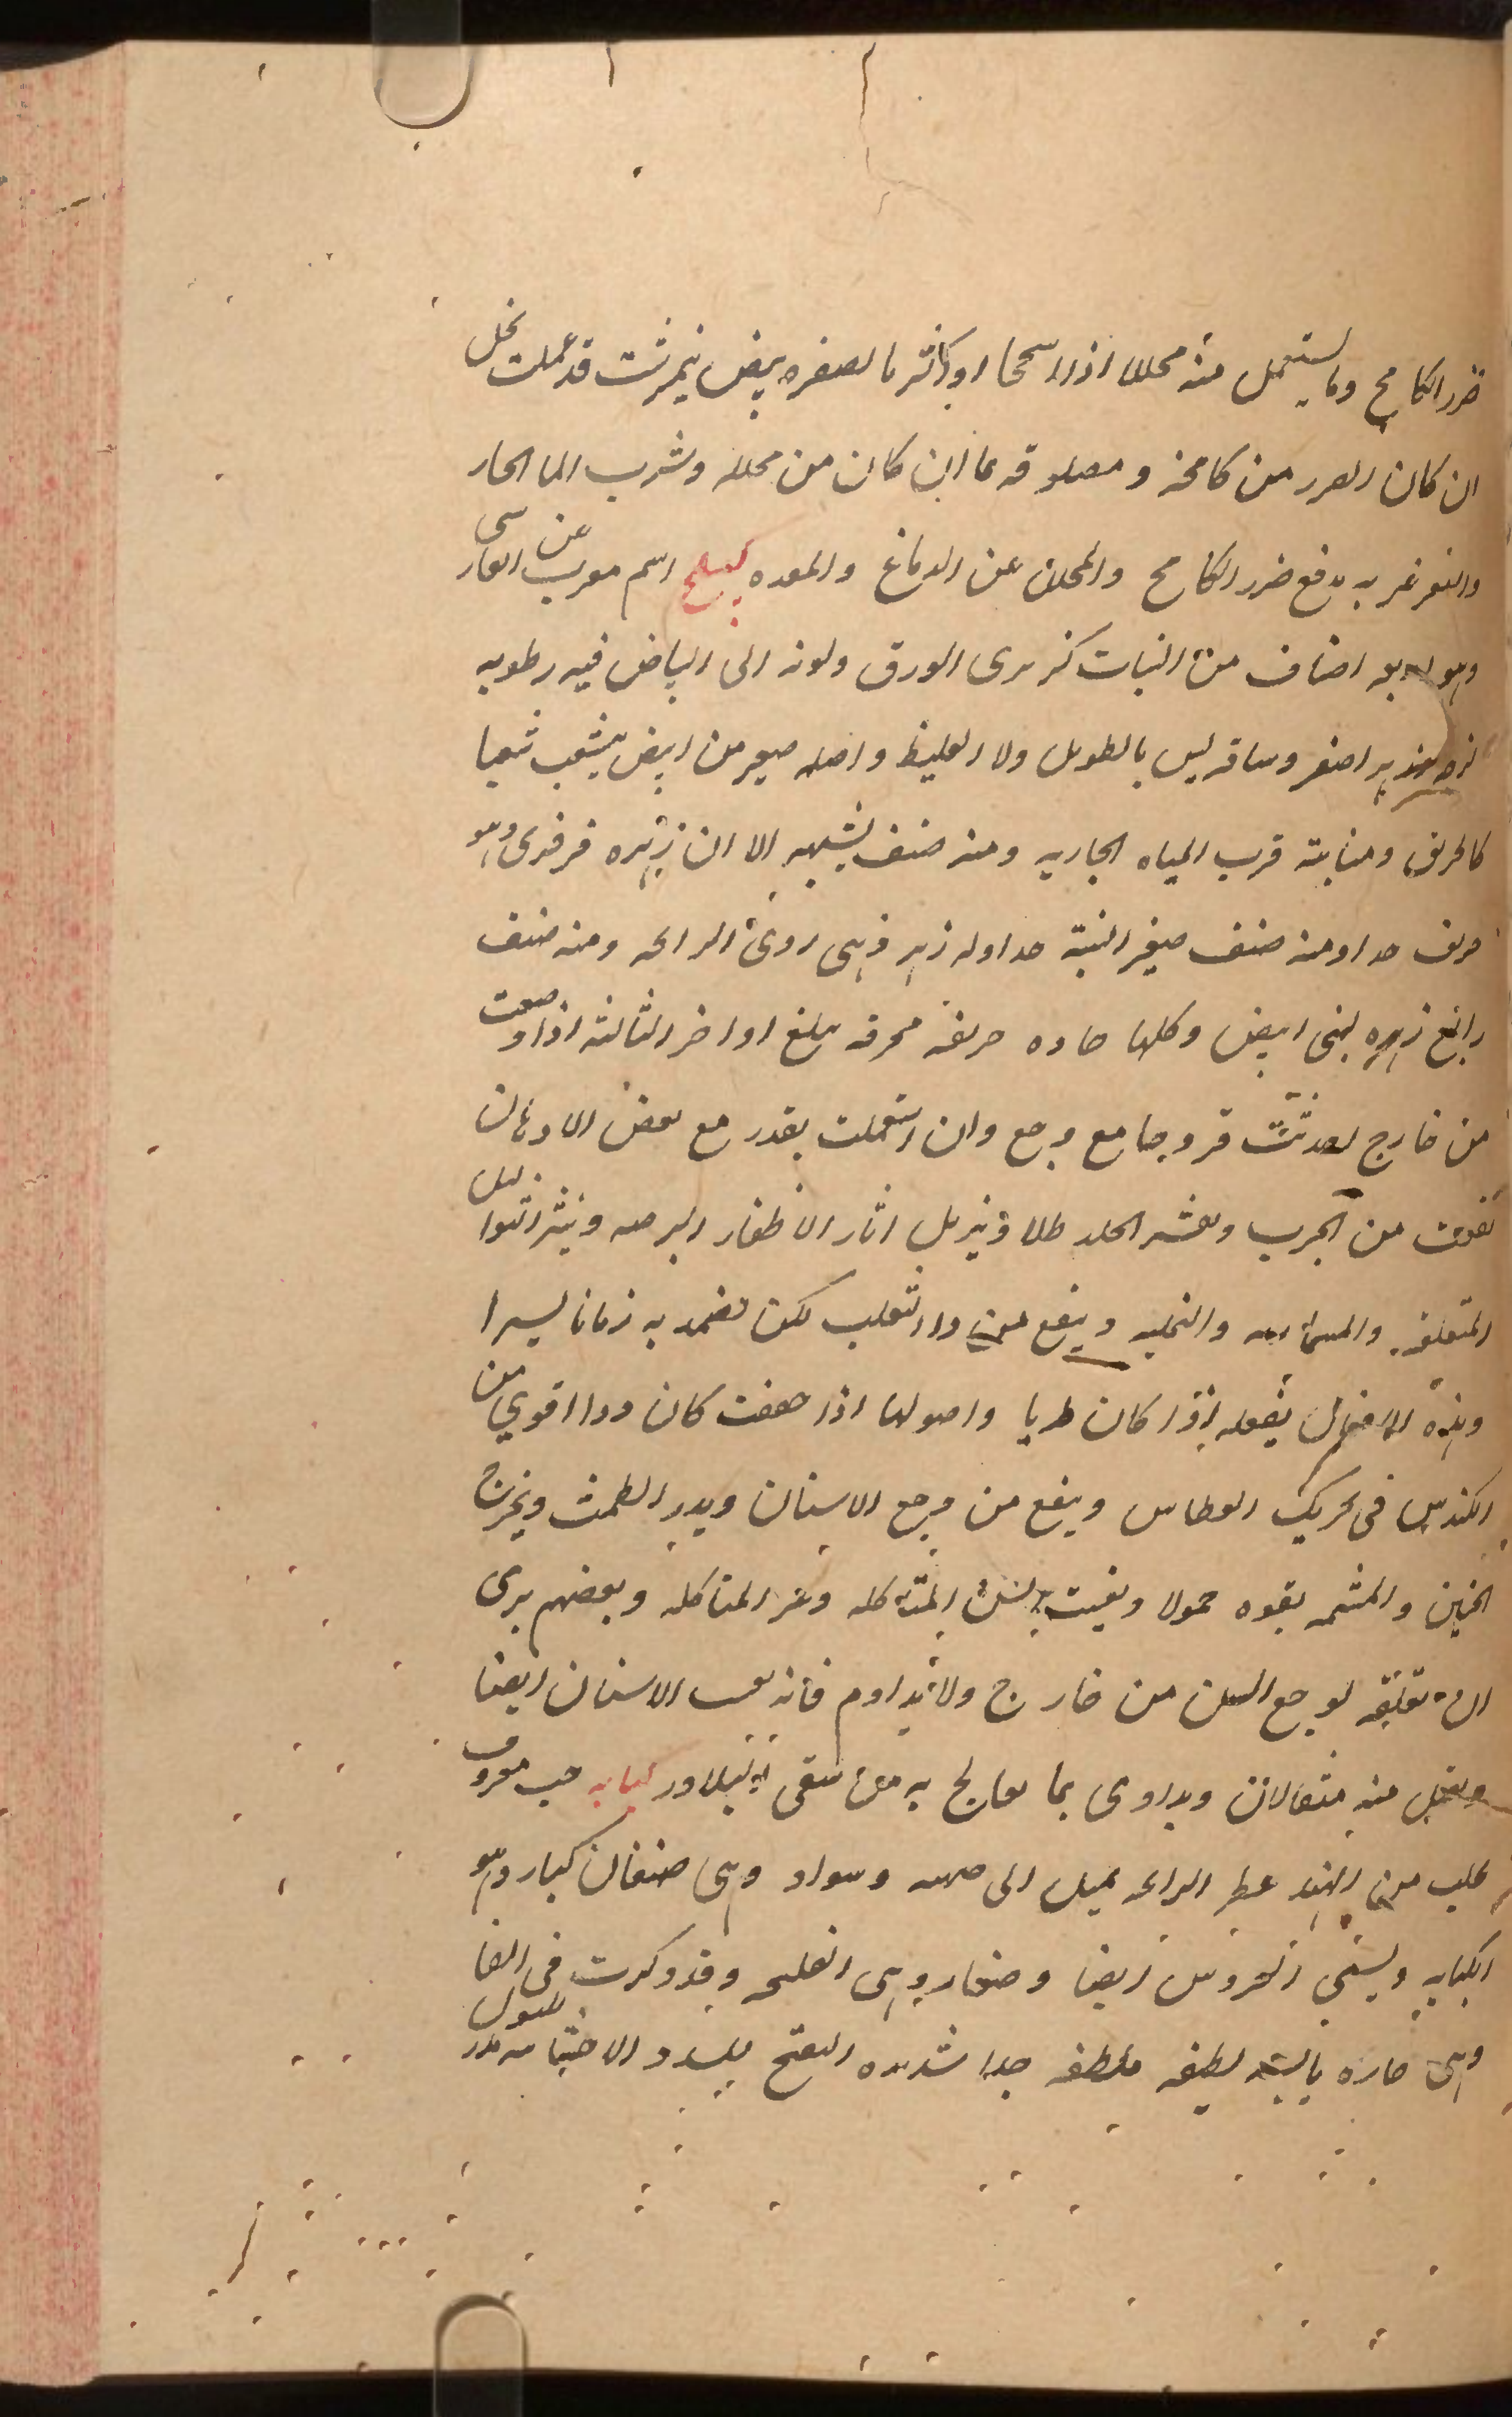 ضرر الكامخ وما يستعمل منه مخللا اذا اسحجا او اكثرنا لصفره بيض نيمرشت قد عملت بخل
ان كان الضرر من كامخه و مصلوقه بما ان كان من مخلله وشرب الما الحار
والتغرغر به يدفع ضرر الكامخ والمخلل عن الدماغ والمعده كبيكج اسم معرب عن الفارسى
وهو اربعه اصناف من النبات كزبرى الورق ولونه الى البياض فيه رطوبه
لزجه زهر اصفر وساقه ليس بالطويل ولا الغليظ واصله صغير من ابيض يتشعب شعبا
كالخربق ومنابته قرب المياه الجاريه ومنه صنف يشبهه الا ان زهره فرفيرى وهو
حريف جدا ومنه صنف صغير النبته جدا وله زهر ذهبى ردى الرائحه ومنه صنف
رابع زهره لبنى ابيض وكلها حاده حريفه محرقه يبلغ اواخر الثالثه اذا وضعت
من خارج احدثت قروحا مع وجع وان استعملت بقدر مع بعض الادهان
نفعت من الجرب وتقشر الجلد طلا وتزيل اثار الاظفار البرصه وتنثر الثواليل
المتعلقه والمسماريه والنمليه وينفع من داء الثعلب لكن تضمد به زمانا يسيرا
وهذه الافعال يفعله اذا كان طريا واصولها اذا جففت كان دوا اقوي من
الكندس فى تحريك العطاس وينفع من وجع الاسنان ويدر الطمث ويخرج
الجنين والمشيمه بقوه حمولا ويفتت السن المتاكله وغير المتاكله وبعضهم يرى
ان تعليقه لوجع السن من خارج ولا يداوم فانه يفتت الاسنان ايضا
ويقتل منه مثقالان ويداوى بما يعالج به من سقى البلادر كبابه حب معروف
يجلب من الهند عطر الرائحه يميل الى صهبه وسواد وهى صنفان كبار وهو
الكبابه ويسمى العروس ايضا وصغار وهى الفلنجه وقد ذكرت فى الفا
وهى حاره يابسه لطيفه ملطفه جدا شديده التفتح لسدد الاحشا مدر للبول